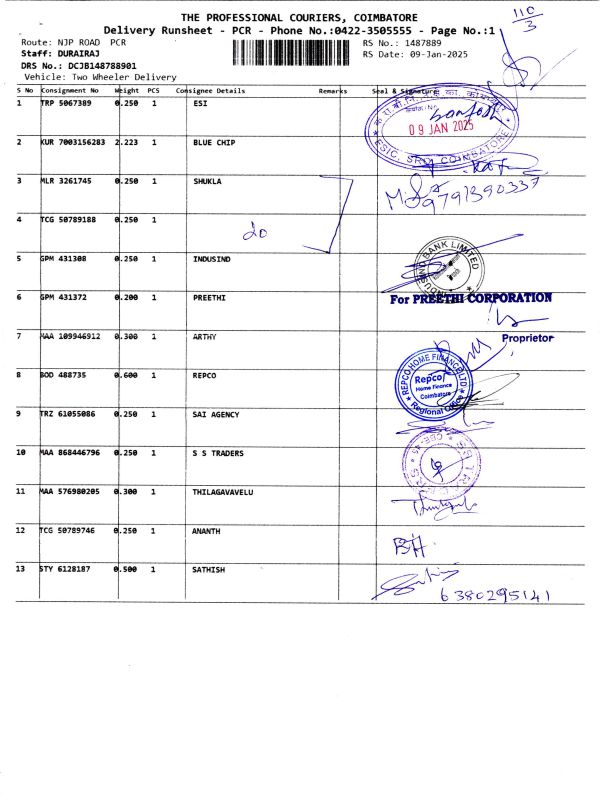 THE PROFESSIONAL COURIERS, COIMBATORE
Delivery Runsheet - PCR - Phone No.:0422-3505555 - Page No.:1
110
3
Route: NJP ROAD PCR
RS No.: 1487889
Staff: DURAIRAJ
RS Date: 09-Jan-2025
DRS No.: DCJB148788901
Vehicle: Two Wheeler Delivery
S No Consignment No Weight PCS Consignee Details Remarks Seal & Signature
1 TRP 5067389 0.250 1 ESI
Santosh
09 JAN 2025
ESIC, SRO COIMBATORE
2 KUR 7003156283 2.223 1 BLUE CHIP
3 MLR 3261745 0.250 1 SHUKLA
9791390337
4 TCG 50789188 0.250 1
do
5 GPM 431308 0.250 1 INDUSIND
INDUSIND BANK LIMITED
6 GPM 431372 0.200 1 PREETHI
For PREETHI CORPORATION
Proprietor
7 MAA 109946912 0.300 1 ARTHY
8 BOD 488735 0.600 1 REPCO
REPCO HOME FINANCE LTD
Repco
Home Finance
Coimbatore
Regional Office
9 TRZ 61055086 0.250 1 SAI AGENCY
10 MAA 868446796 0.250 1 S S TRADERS
S.S TRADERS
CBE-45
11 MAA 576980205 0.300 1 THILAGAVAVELU
12 TCG 50789746 0.250 1 ANANTH
BH
13 STY 6128187 0.500 1 SATHISH
6380295141